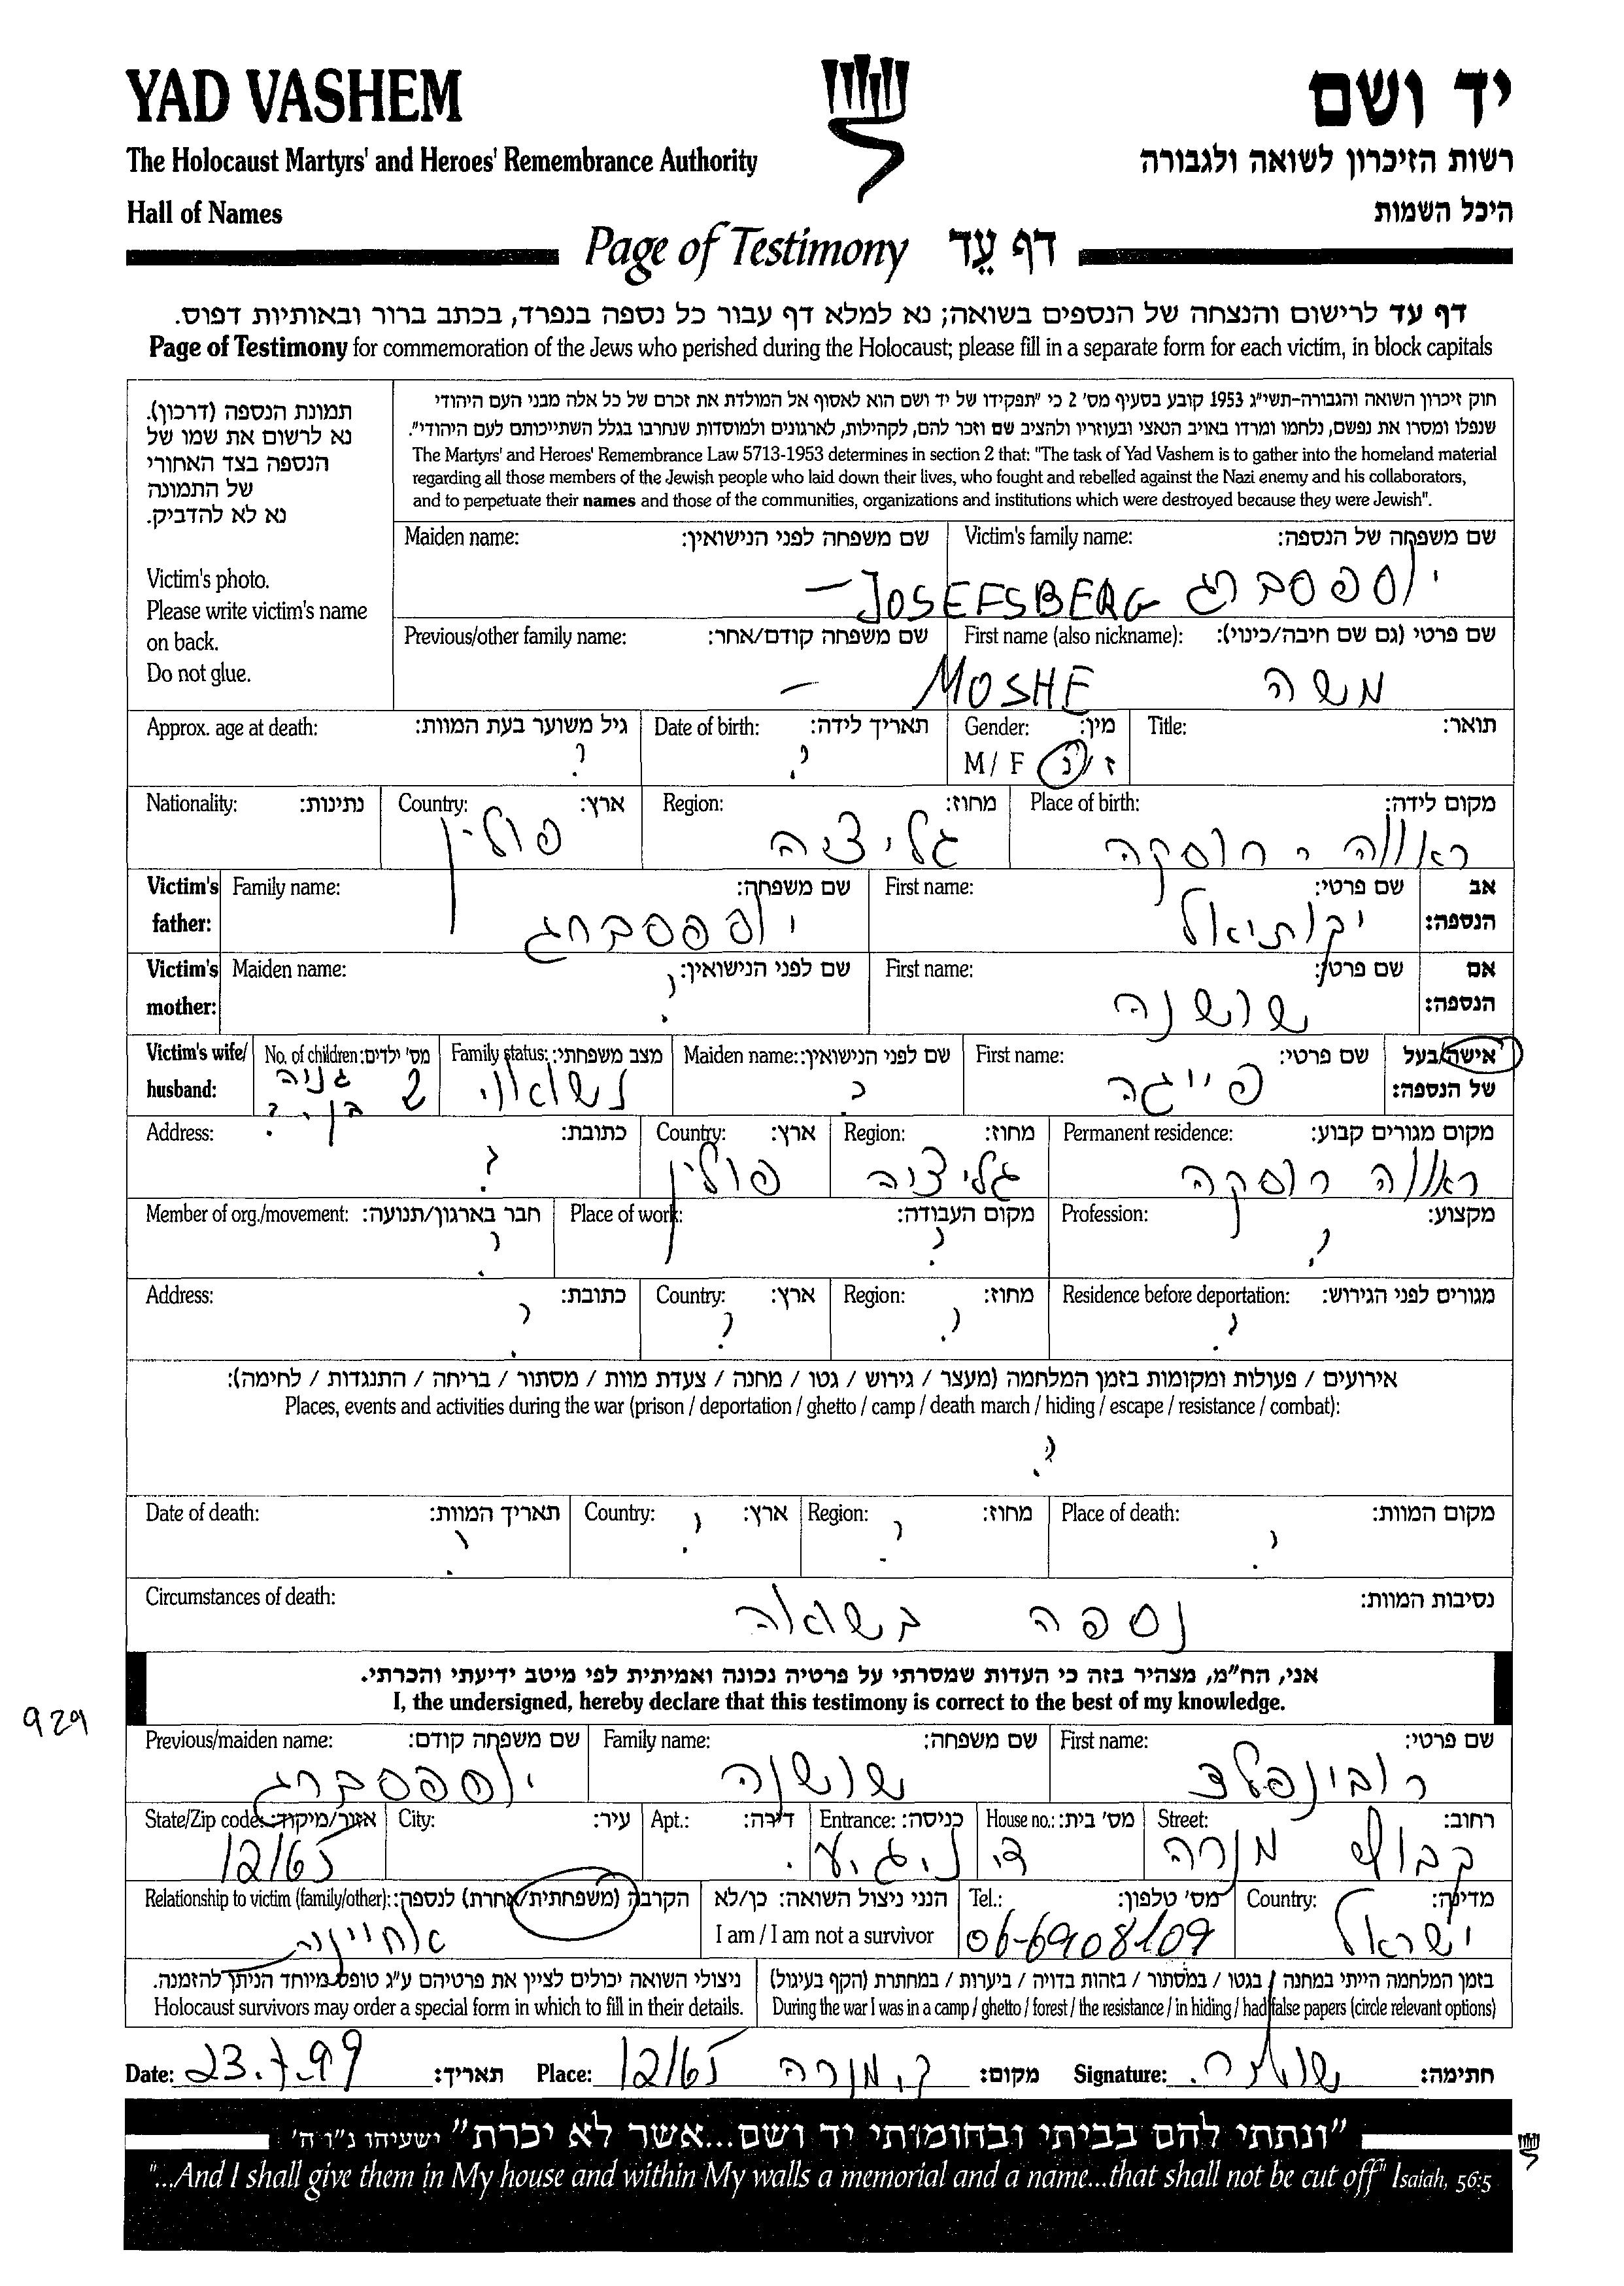 YAD VASHEM יד ושם
The Holocaust Martyrs' and Heroes' Remembrance Authority רשות הזיכרון לשואה ולגבורה
Hall of Names היכל השמות
Page of Testimony דף עֵד
דף עד לרישום והנצחה של הנספים בשואה; נא למלא דף עבור כל נספה בנפרד, בכתב ברור ובאותיות דפוס.
Page of Testimony for commemoration of the Jews who perished during the Holocaust; please fill in a separate form for each victim, in block capitals
תמונת הנספה (דרכון).
נא לרשום את שמו של
הנספה בצד האחורי
של התמונה
נא לא להדביק.
Victim's photo.
Please write victim's name
on back.
Do not glue.
חוק זיכרון השואה והגבורה-תשי"ג 1953 קובע בסעיף מס' 2 כי "תפקידו של יד ושם הוא לאסוף אל המולדת את זכרם של כל אלה מבני העם היהודי
שנפלו ומסרו את נפשם, נלחמו ומרדו באויב הנאצי ובעוזריו ולהציב שם וזכר להם, לקהילות, לארגונים ולמוסדות שנחרבו בגלל השתייכותם לעם היהודי".
The Martyrs' and Heroes' Remembrance Law 5713-1953 determines in section 2 that: "The task of Yad Vashem is to gather into the homeland material
regarding all those members of the Jewish people who laid down their lives, who fought and rebelled against the Nazi enemy and his collaborators,
and to perpetuate their names and those of the communities, organizations and institutions which were destroyed because they were Jewish".
Maiden name: שם משפחה לפני הנישואין: Victim's family name: שם משפחה של הנספה:
– JOSEFSBERG יוספסברג
Previous/other family name: שם משפחה קודם/אחר: First name (also nickname): שם פרטי (גם שם חיבה/כינוי):
– MOSHE משה
Approx. age at death: גיל משוער בעת המוות: Date of birth: תאריך לידה: Gender: מין: Title: תואר:
? ? M / F ז / נ
Nationality: נתינות: Country: ארץ: Region: מחוז: Place of birth: מקום לידה:
פולין גליציה ראווה - רוסקה
Victim's father: Family name: שם משפחה: First name: שם פרטי: אב הנספה:
יוספסברג יקותיאל
Victim's mother: Maiden name: שם לפני הנישואין: First name: שם פרטי: אם הנספה:
? שושנה
Victim's wife/ husband: No. of children: מס' ילדים: Family status: מצב משפחתי: Maiden name: שם לפני הנישואין: First name: שם פרטי: אישה/בעל של הנספה:
2 גניה נשואוי ? פייגה
Address: כתובת: Country: ארץ: Region: מחוז: Permanent residence: מקום מגורים קבוע:
? פולין גליציה ראווה רוסקה
Member of org./movement: חבר בארגון/תנועה: Place of work: מקום העבודה: Profession: מקצוע:
? ? ?
Address: כתובת: Country: ארץ: Region: מחוז: Residence before deportation: מגורים לפני הגירוש:
? ? ? ?
אירועים / פעולות ומקומות בזמן המלחמה (מעצר / גירוש / גטו / מחנה / צעדת מוות / מסתור / בריחה / התנגדות / לחימה):
Places, events and activities during the war (prison / deportation / ghetto / camp / death march / hiding / escape / resistance / combat):
?
Date of death: תאריך המוות: Country: ארץ: Region: מחוז: Place of death: מקום המוות:
? ? ? ?
Circumstances of death: נסיבות המוות:
נספה בשואה
אני, הח"מ, מצהיר בזה כי העדות שמסרתי על פרטיה נכונה ואמיתית לפי מיטב ידיעתי והכרתי.
I, the undersigned, hereby declare that this testimony is correct to the best of my knowledge.
929
Previous/maiden name: שם משפחה קודם: Family name: שם משפחה: First name: שם פרטי:
יוספסברג שושנה רובינפלד
State/Zip code: אזור/מיקוד: City: עיר: Apt.: דירה: Entrance: כניסה: House no.: מס' בית: Street: רחוב:
12165 קבוץ מנרה
Relationship to victim (family/other): הקרבה (משפחתית/אחרת) לנספה: הנני ניצול השואה: כן/לא Tel.: מס' טלפון: Country: מדינה:
אחיינה I am / I am not a survivor 06-6908109 ישראל
ניצולי השואה יכולים לציין את פרטיהם ע"ג טופס מיוחד הניתן להזמנה. בזמן המלחמה הייתי במחנה / בגטו / במסתור / בזהות בדויה / ביערות / במחתרת (הקף בעיגול)
Holocaust survivors may order a special form in which to fill in their details. During the war I was in a camp / ghetto / forest / the resistance / in hiding / had false papers (circle relevant options)
Date: 23.7.99 תאריך: Place: 12165 ק. מנרה מקום: Signature: חתימה:
"ונתתי להם בביתי ובחומותי יד ושם...אשר לא יכרת" ישעיהו נ"ו ה'
"...And I shall give them in My house and within My walls a memorial and a name...that shall not be cut off" Isaiah, 56:5